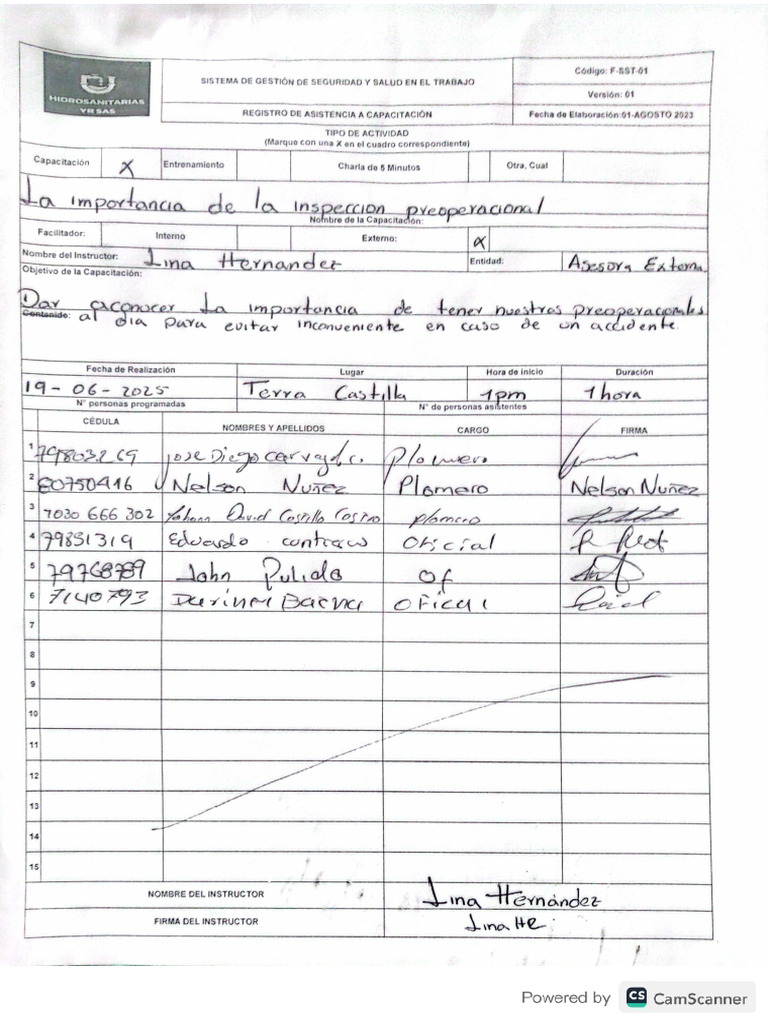 HIDROSANITARIAS
YR SAS
SISTEMA DE GESTIÓN DE SEGURIDAD Y SALUD EN EL TRABAJO
Código: F-SST-01
Versión: 01
REGISTRO DE ASISTENCIA A CAPACITACIÓN
Fecha de Elaboración:01-AGOSTO 2023
TIPO DE ACTIVIDAD
(Marque con una X en el cuadro correspondiente)
Capacitación X Entrenamiento Charla de 5 Minutos Otra, Cual
La importancia de la inspeccion preoperacional
Nombre de la Capacitación:
Facilitador: Interno Externo: X
Nombre del Instructor: Lina Hernandez Entidad: Asesora Externa
Objetivo de la Capacitación:
Dar aconocer La importancia de tener nuestros preoperacionales
Contenido: al dia para evitar inconveniente en caso de un accidente.
Fecha de Realización Lugar Hora de inicio Duración
19-06-2025 Terra Castilla 1pm 1hora
N° personas programadas N° de personas asistentes
CÉDULA NOMBRES Y APELLIDOS CARGO FIRMA
1 79803269 Jose Diego Carvajal c. Plomero
2 80750416 Nelson Nuñez Plomero Nelson Nuñez
3 1030 666 302 Johann David Castillo Castro plomero
4 79851319 Eduardo contreras Oficial
5 79768789 John Pulido Of
6 7140793 Baena Oficial
7
8
9
10
11
12
13
14
15
NOMBRE DEL INSTRUCTOR Lina Hernández
FIRMA DEL INSTRUCTOR Lina He
Powered by CS CamScanner